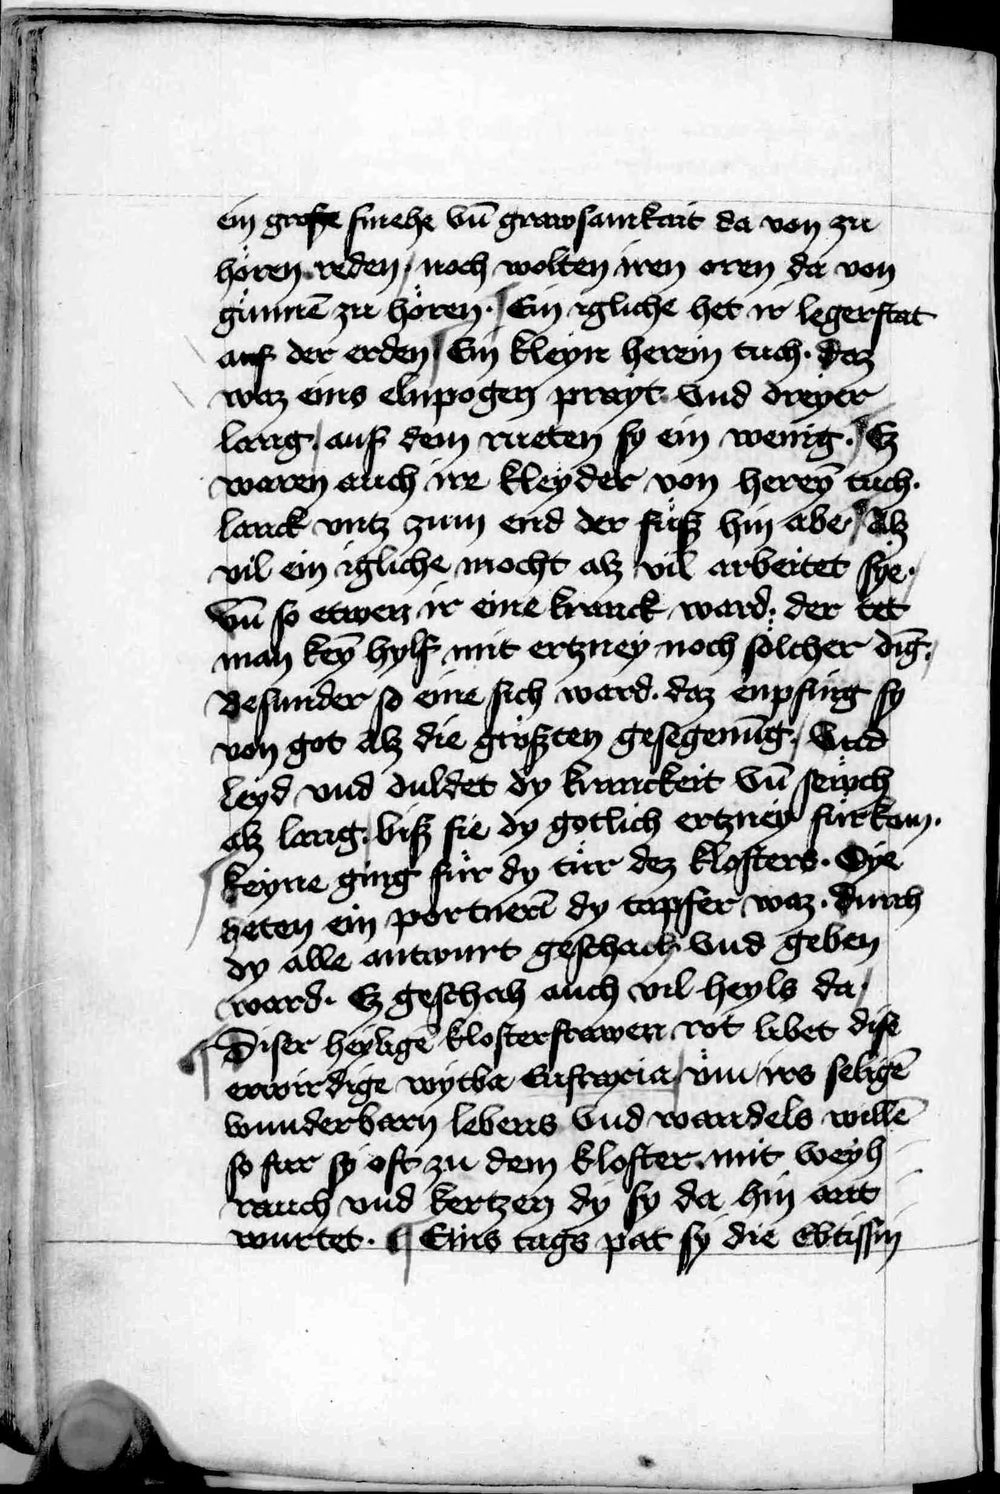 ein große smehe vn̄ grawsamkait da von zu
hören reden / noch wolten iren oren da von
günnē zu hören · Ein igliche het ir legerstat
auf der erden Ein kleyn herein tuch · daz
waz eins elnpogen prayt · vnd dreyer
lang / auf dem rueten sy ein wenig · Ez
waren auch ire kleyder von hereȳ tuch ·
lanck vntz zum end der füß hin abe / Alz
vil ein igliche mocht alz vil arbeitet sye ·
vn̄ so etwen ir eine kranck ward · der tet
man keȳ hylf mit ertzney noch sölcher dīg /
Besunder so eine sich ward · daz enpfing sy
von got Alz die größten gesegenūg / Vnd
leyd vnd duldet dy kranckeit vn̄ seüch
alz lang / biß sie dy gotlich ertzney fürkom ·
keyne ging für dy tür dez klosters · Sye
heten ein portnerī dy tapfer waz · durch
dy alle antwurt geschach vnd geben
ward · Ez geschah auch vil heyls da /
Diser heyligē klosterfrawen rot libet dise
erwirdige wytba Eufraxia / vm irs seligē
wunderbarn lebens vnd wandels willē
so fur sy oft zu dem kloster mit weyh
rauch vnd kertzen dy sy da hin ant
wurtet · Eins tags pat sy die Ebtissin